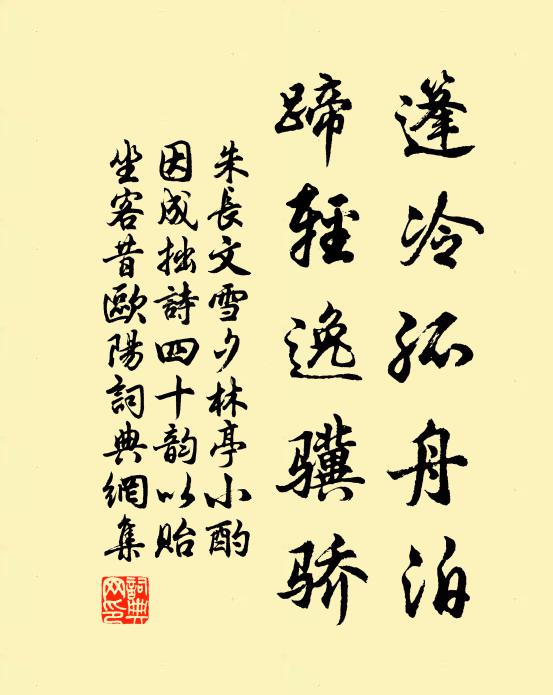 蓬冷孤舟泊
蹄輕逸骥骄
朱長文雪夕林亭小酌
因成拙詩四十韵以貽
坐客昔歐陽詞典網集
詞典
网印